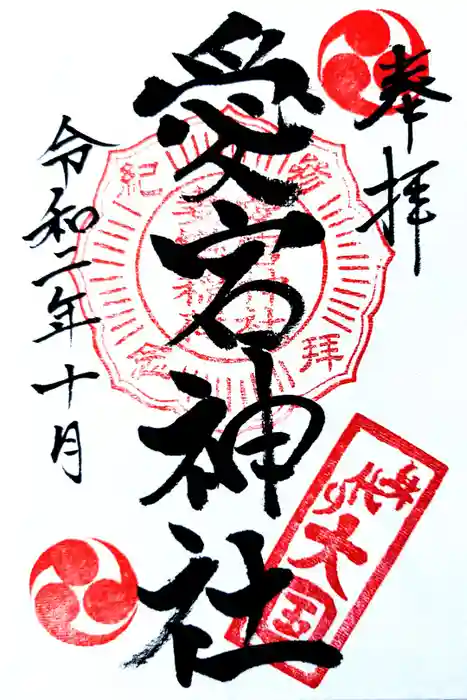 奉拝
愛宕神社
令和二年十月
参拝紀念
大国